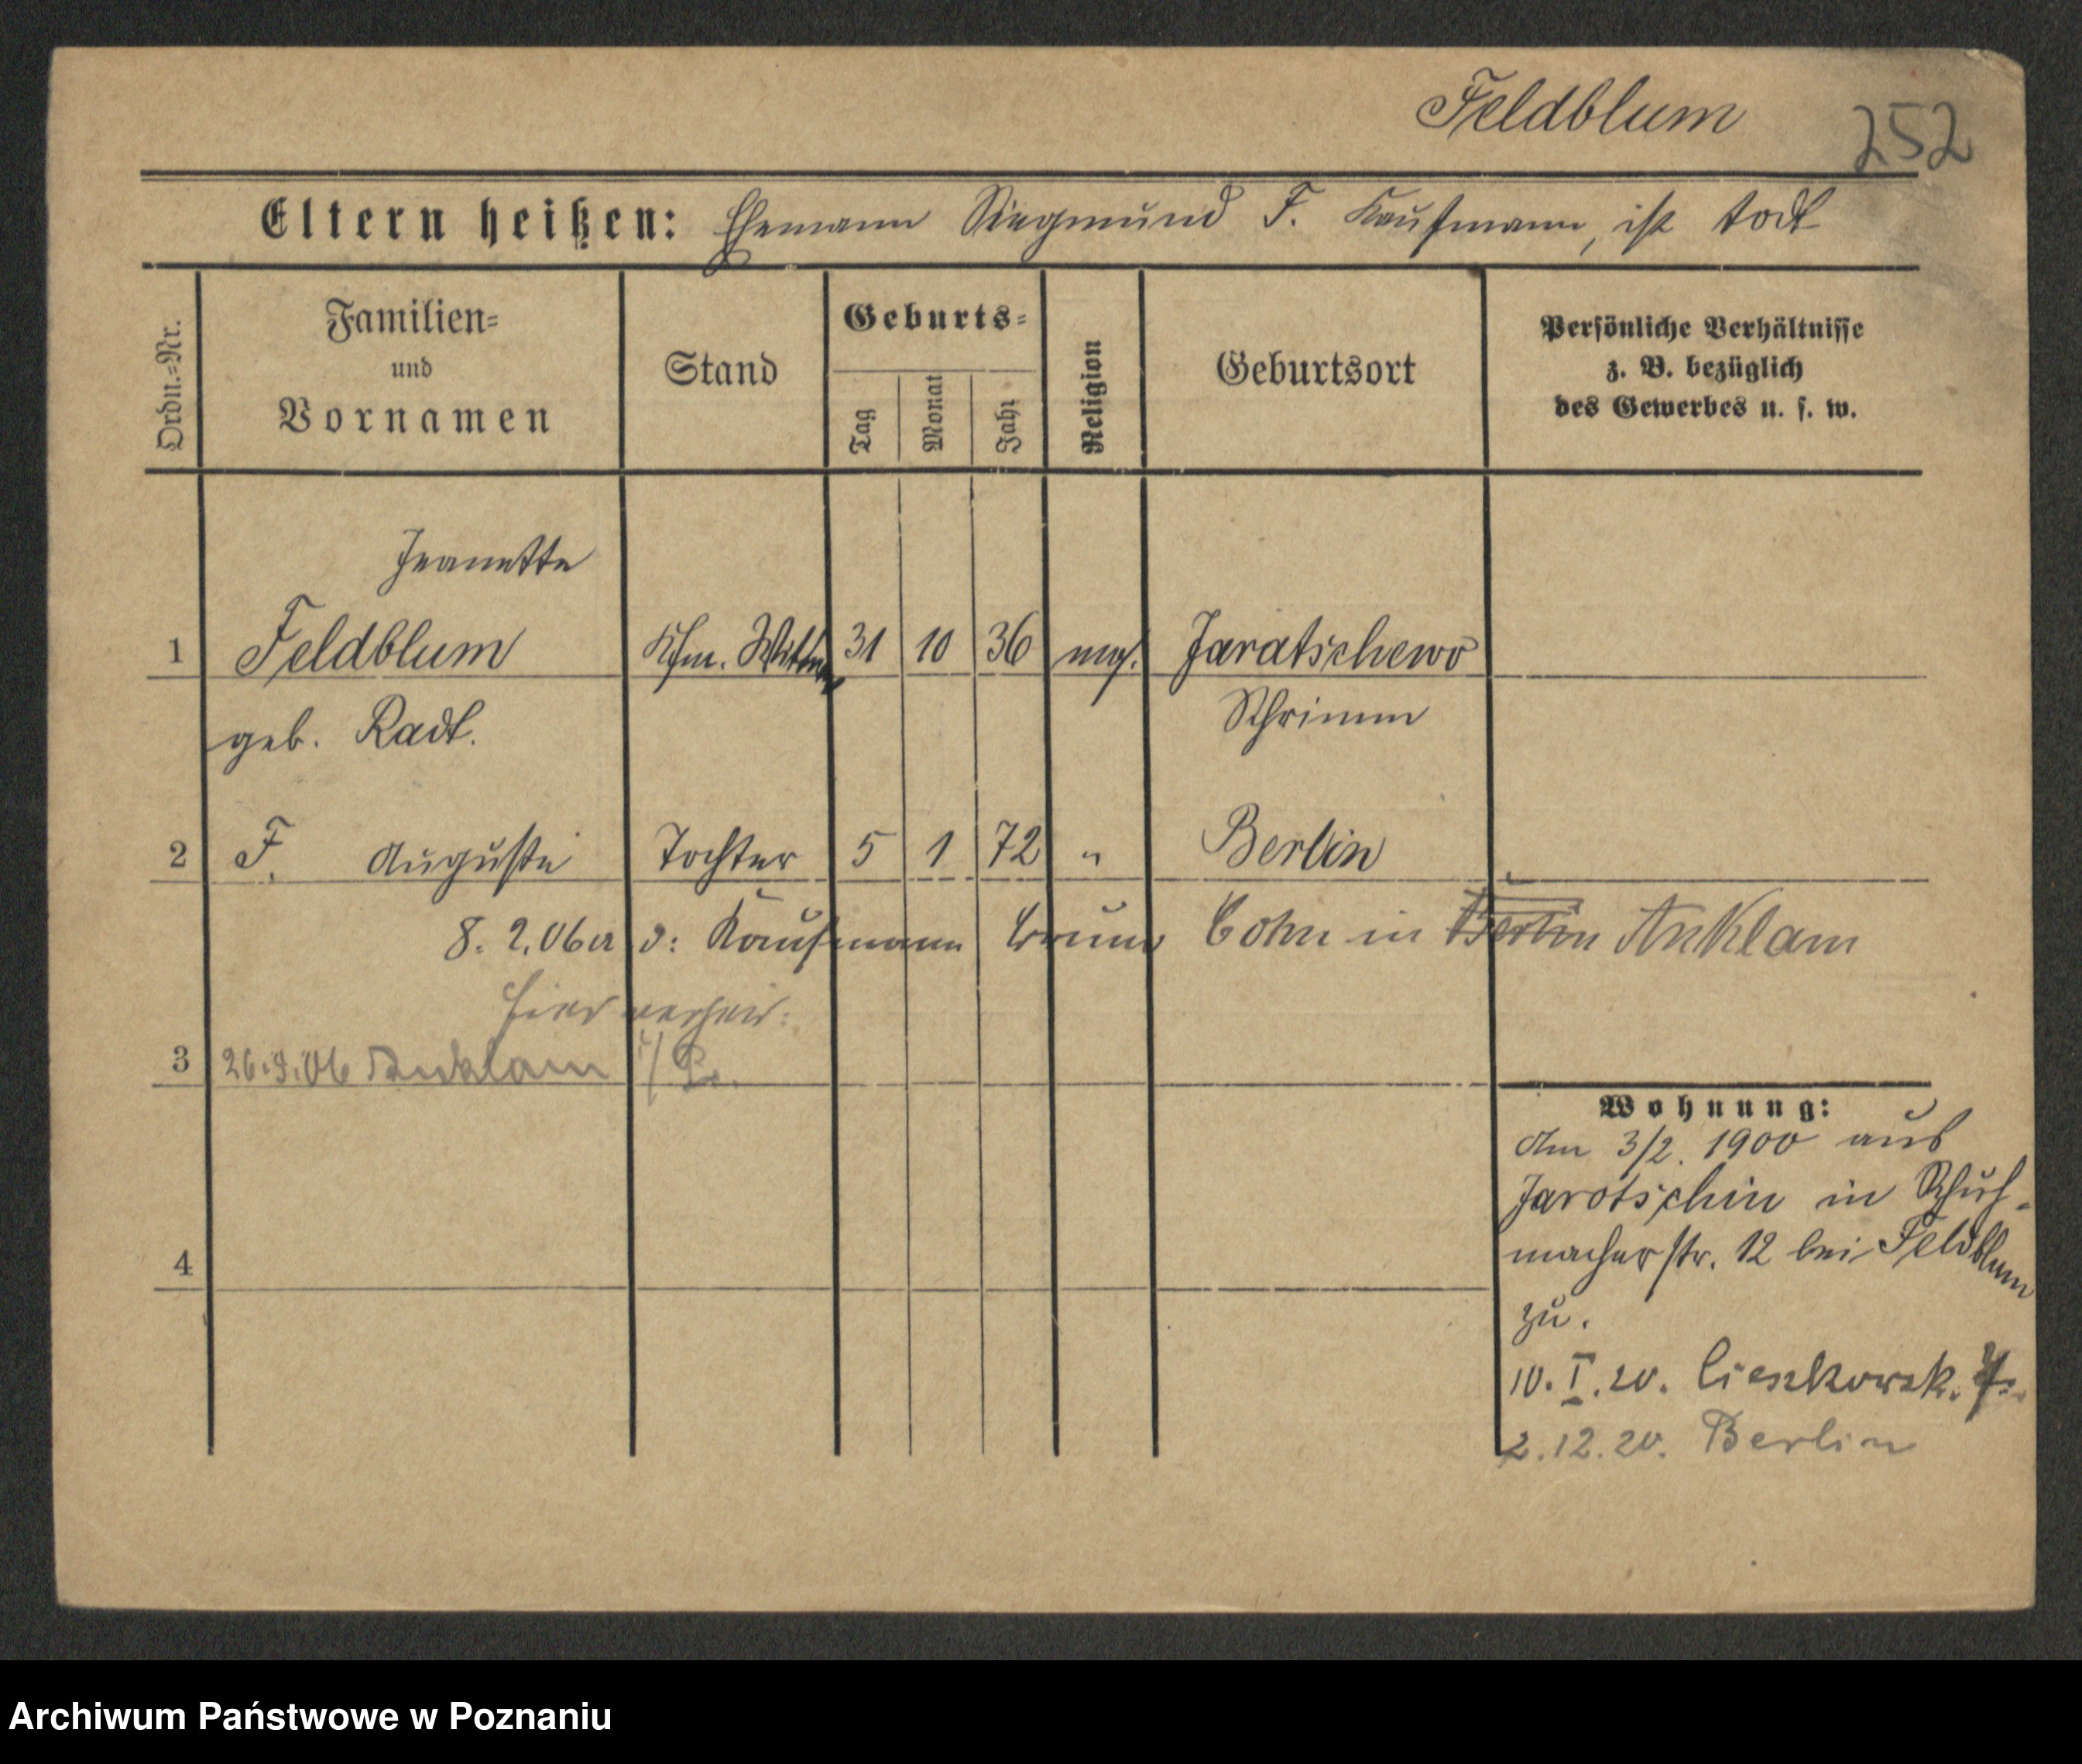 Feldblum
252
Eltern heißen: Ehemann Siegmund F. Kaufmann, ist todt
Ordn.=Nr.
Familien=
und
Vornamen
Stand
Geburts=
Tag
Monat
Jahr
Religion
Geburtsort
Persönliche Verhältnisse
z. B. bezüglich
des Gewerbes u. s. w.
Jeanette
1 Feldblum Kfm. Wittwe 31 10 36 mos. Jaratschewo
geb. Radt. Schrimm
2 F. Auguste Tochter 5 1 72 " Berlin
8. 2. 06 Kaufmann Bruno Cohn in Berlin Anklam
hier verheir:
3 26.9.06 Anklam i/P.
4
Wohnung:
Am 3/2. 1900 aus
Jarotschin in Schuh-
macherstr. 12 bei Feldblum
zu.
10. I. 20. Cieszkowsk.
2.12.20. Berlin
Archiwum Państwowe w Poznaniu